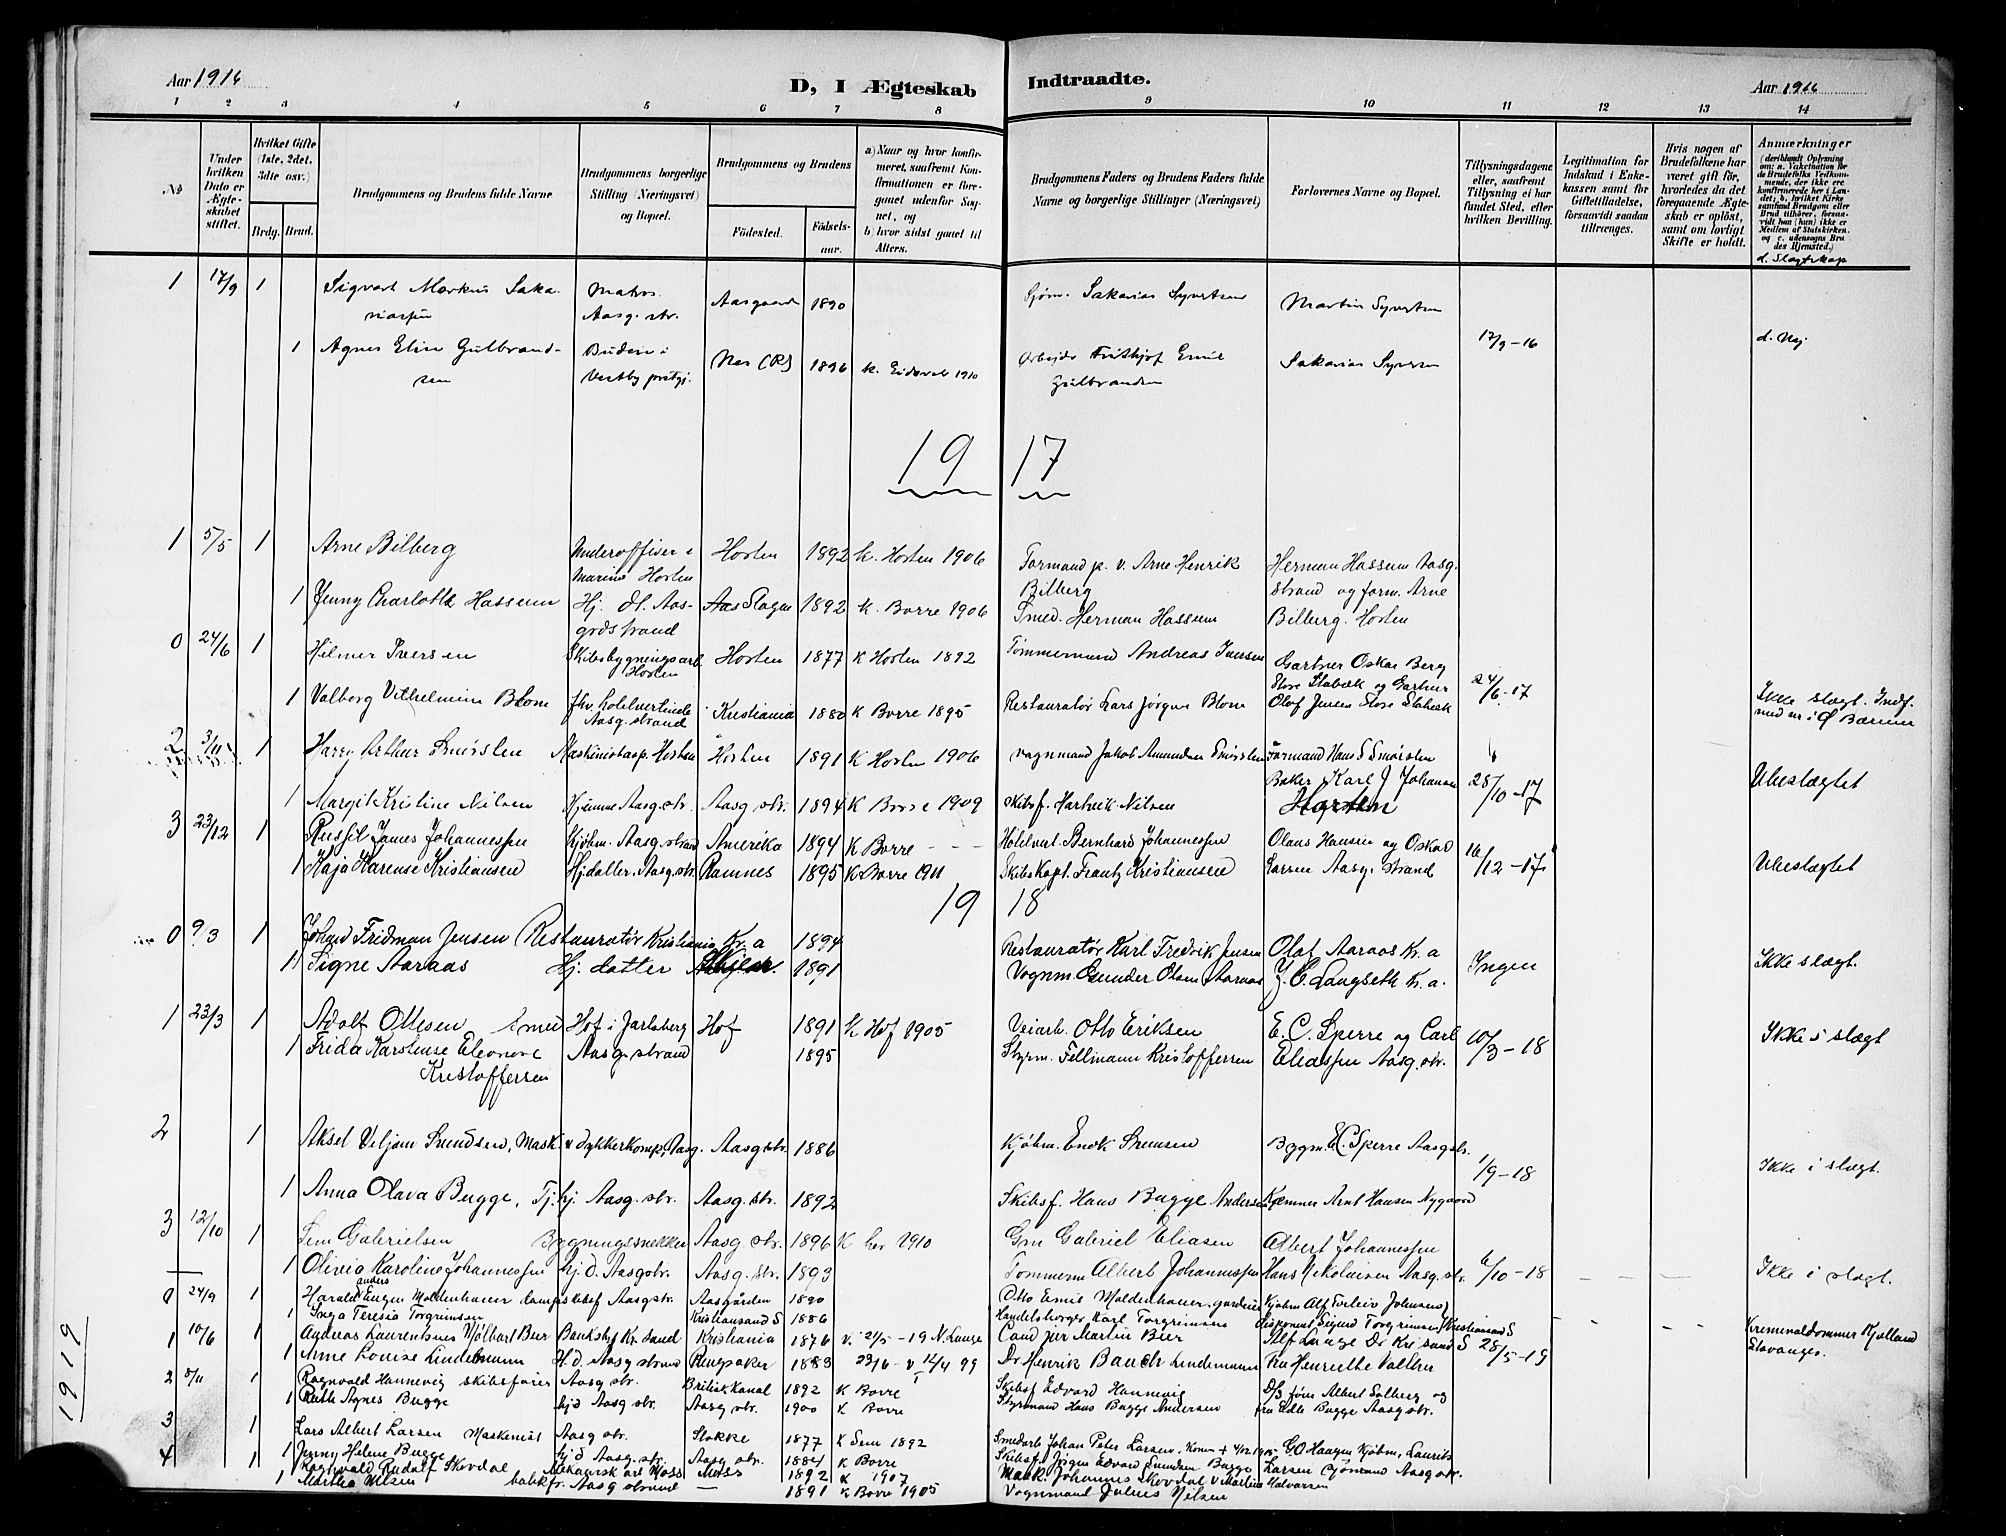 Aar 1916
D, I Ægteskab Indtraadte.
Aar 1916
1 2 3 4 5 6 7 8 9 10 11 12 13 14
No
Under hvilken Dato er Ægteskabet stiftet.
Hvilket Gifte (1ste, 2det, 3die osv.)
Brdg. Brud.
Brudgommens og Brudens fulde Navne
Brudgommens borgerlige Stilling (Næringsvei) og Bopæl.
Brudgommens og Brudens
Fødested. Fødselsaar.
a) Naar og hvor konfirmeret, saafremt Konfirmationen er foregaaet udenfor Sognet, og
b) hvor sidst gaaet til Alters.
Brudgommens Faders og Brudens Faders fulde Navne og borgerlige Stillinger (Næringsvei)
Forlovernes Navne og Bopæl.
Tillysningsdagene eller, saafremt Tillysning ei har fundet Sted, efter hvilken Bevilling.
Legitimation for Indskud i Enkekassen samt for Giftetilladelse, forsaavidt saadan tiltrænges.
Hvis nogen af Brudefolkene har været gift før, hvorledes da det foregaaende Ægteskab er opløst, samt om lovligt Skifte er holdt.
Anmærkninger
(deriblandt Oplysning om: a. Vaccination for de Brudefolks Vedkommende, der ikke ere konfirmerede her i Landet; b. hvilket Kirkesamfund Brudgom eller Brud tilhører, forsaavidt han (hun) ikke er Medlem af Statskirken, og c. udensogns Brudes Hjemsted.)
d. Slægtskap
1 17/9 1 Sigvart Markus Sakariassen Matros Aasg. str. Aasgaard 1890 Sjøm. Sakarias Syvertsen Martin Syvertsen
1 Agnes Elise Gulbrandsen Budeie i Vestby prstgj. Nes (R) 1896 k. Eidsvold 1910 Arbejder Frithjof Emil Gulbrandsen Sakarias Syversen 17/9-16 d. Nej
19 17
1 5/5 1 Arne Bilberg Underofficer i Marine Horten Horten 1892 K. Horten 1906 Formand p. v. Arne Henrik Bilberg Herman Hassum Aasg.
1 Jenny Charlotte Hassum Hj. dt. Aasgrdstrand Aas Slagen 1892 K. Borre 1906 Smed. Herman Hassum strand og form. Arne Bilberg. Horten
0 24/6 1 Hilmer Iversen Skibsbygningsarb. Horten Horten 1877 K Horten 1892 Tømmermand Andreas Iversen Gartner Oskar Berg
1 Valborg Vilhelmine Blom fhv. hotelvertinde Aasg. strand Kristiania 1880 K Borre 1895 Restauratør Lars Jørgen Blom Store Stabæk og Gartner Olaf Jensen Store Stabæk 24/6-17 Ikke slægt. Indf.
2 3/11 1 Harry Arthur Smørsten Maskinistasp. Horten Horten 1891 K Horten 1906 Vognmand Jakob Amundsen Smørsten Formand Hans S Smørsten
1 Margit Kristine Nilsen Hjemme Aasg. str. Aasg str. 1894 K Borre 1909 Skibsf. Hartvik Nilsen Baker Karl J Johansen Horten 28/10-17 Ubeslægtet
3 23/12 1 Russel James Johannessen Kjøbm. Aasg. strand Amerika 1894 K Borre - - - Hotelvert Bernhard Johannessen Olaus Hansen og Oskar
1 Kaja Karense Kristiansen Hj datter. Aasg. str. Ramnes 1895 K Borre 1911 Skibskapt. Frantz Kristiansen Larsen Aasg. strand 16/12-17 Ubeslægtet
19 18
0 9/3 1 Johan Fridman Jensen Restauratør Kristiania Kr. a 1894 Restauratør Karl Fredrik Jensen Olaf Aaraas Kr. a
1 Signe Aaraas Hj. datter 1891 Vognm Gunder Olsen Aaraas J. C. Langseth Kr. a. Ingen Ikke slægt.
1 23/3 1 Adolf Ottesen Smed Hof i Jarlsberg Hof 1891 K Hof 1905 Veiarb. Otto Eriksen E. C. Sperre og Carl
1 Frida Karstense Eleonore Kristoffersen Aasg. strand 1895 Styrm. Fellmann Kristoffersen Eliassen Aasg. str. 10/3-18 Ikke i slægt
2 1 Aksel Viljam Svendsen, Mask. v dykkerkomp, Aasg. Aasg str. 1886 Kjøbm. Enok Svensen Bygm. E C Sperre Aasgstr.
1 Anna Olava Bugge, Tj. hj. Aasg. str. Aasg. str. 1892 Skibsf. Hans Bugge Andersen Kæmner Arnt Hansen Nygaard 1/9-18 Ikke i slægt.
3 12/10 1 Sem Gabrielsen Bygningssnekker Aasg str. 1896 K her 1910 Gm Gabriel Eliasen Albert Johannessen
1 Olivia Karoline Johannessen hj. d. Aasgstr. Aasg. str. 1893 Tømmerm Albert Johannessen Hans Nikolaisen Aasg. str. 6/10-18 - - - Ikke i slægt.
1919
0 24/9 1 Harald anders Eugen Moldenhauer Aasgstr. Aasgården 1890 Otto Emil Moldenhauer, gardeier Kjøbm Alf Torleiv Johnsen
1 Inga Teresia Torgrimsen Kristiansand S 1886 Handelsborger Karl Torgrimsen Disponent Sigurd Torgrimsen, Kristiansand S
1 10/6 1 Andreas Laurentius Mølbart Bier Bankchef Kr. sand Kristiania 1876 v. 21/5-19 N. Lange Cand jur Martin Bier Alf Lange Dr Kr sand S 28/5-19 Kriminaldommer Kjelland Stavanger.
1 Anne Louise Lindemann H. d. Aasg strand Ringsaker 1883 23/6- v 12/4 99 Dr Henrik Bauch Lindemann Fru Henriette
2 5/11 1 Ragnvald Hannevig skibsfører Aasg str. Britisk Kanal 1892 K Borre Skibsf Edvard Hannevig D/S fører Albert Solberg og
1 Ruth Agnes Bugge hjd Aasg str. Aasg str. 1900 K Borre Styrmand Hans Bugge Andersen fru Edle Bugge Aasg str.
3 1 Lars Albert Larsen Maskinist Aasg str. Stokke 1877 K Sem 1892 Smedarb Johan Peter Larsen, G O Haagen Kjøbm, Laurits
1 Jenny Helene Bugge hj d. Aasg. str. Aasg str. 1884 K Borre Skibsf Jørgen Edvard Svendsen Bugge Larsen Sjømand Aasg str.
4 1 Ragnvald Rudolf Skovdal Mekanisk arb Moss Moss 1892 K 1907 Mask. Johannes Skovdal v Martine Halvorsen
1 Martha Nilsen butikfr. Aasg strand - 1891 K Borre 1905 Vognmand Julius Nilsen